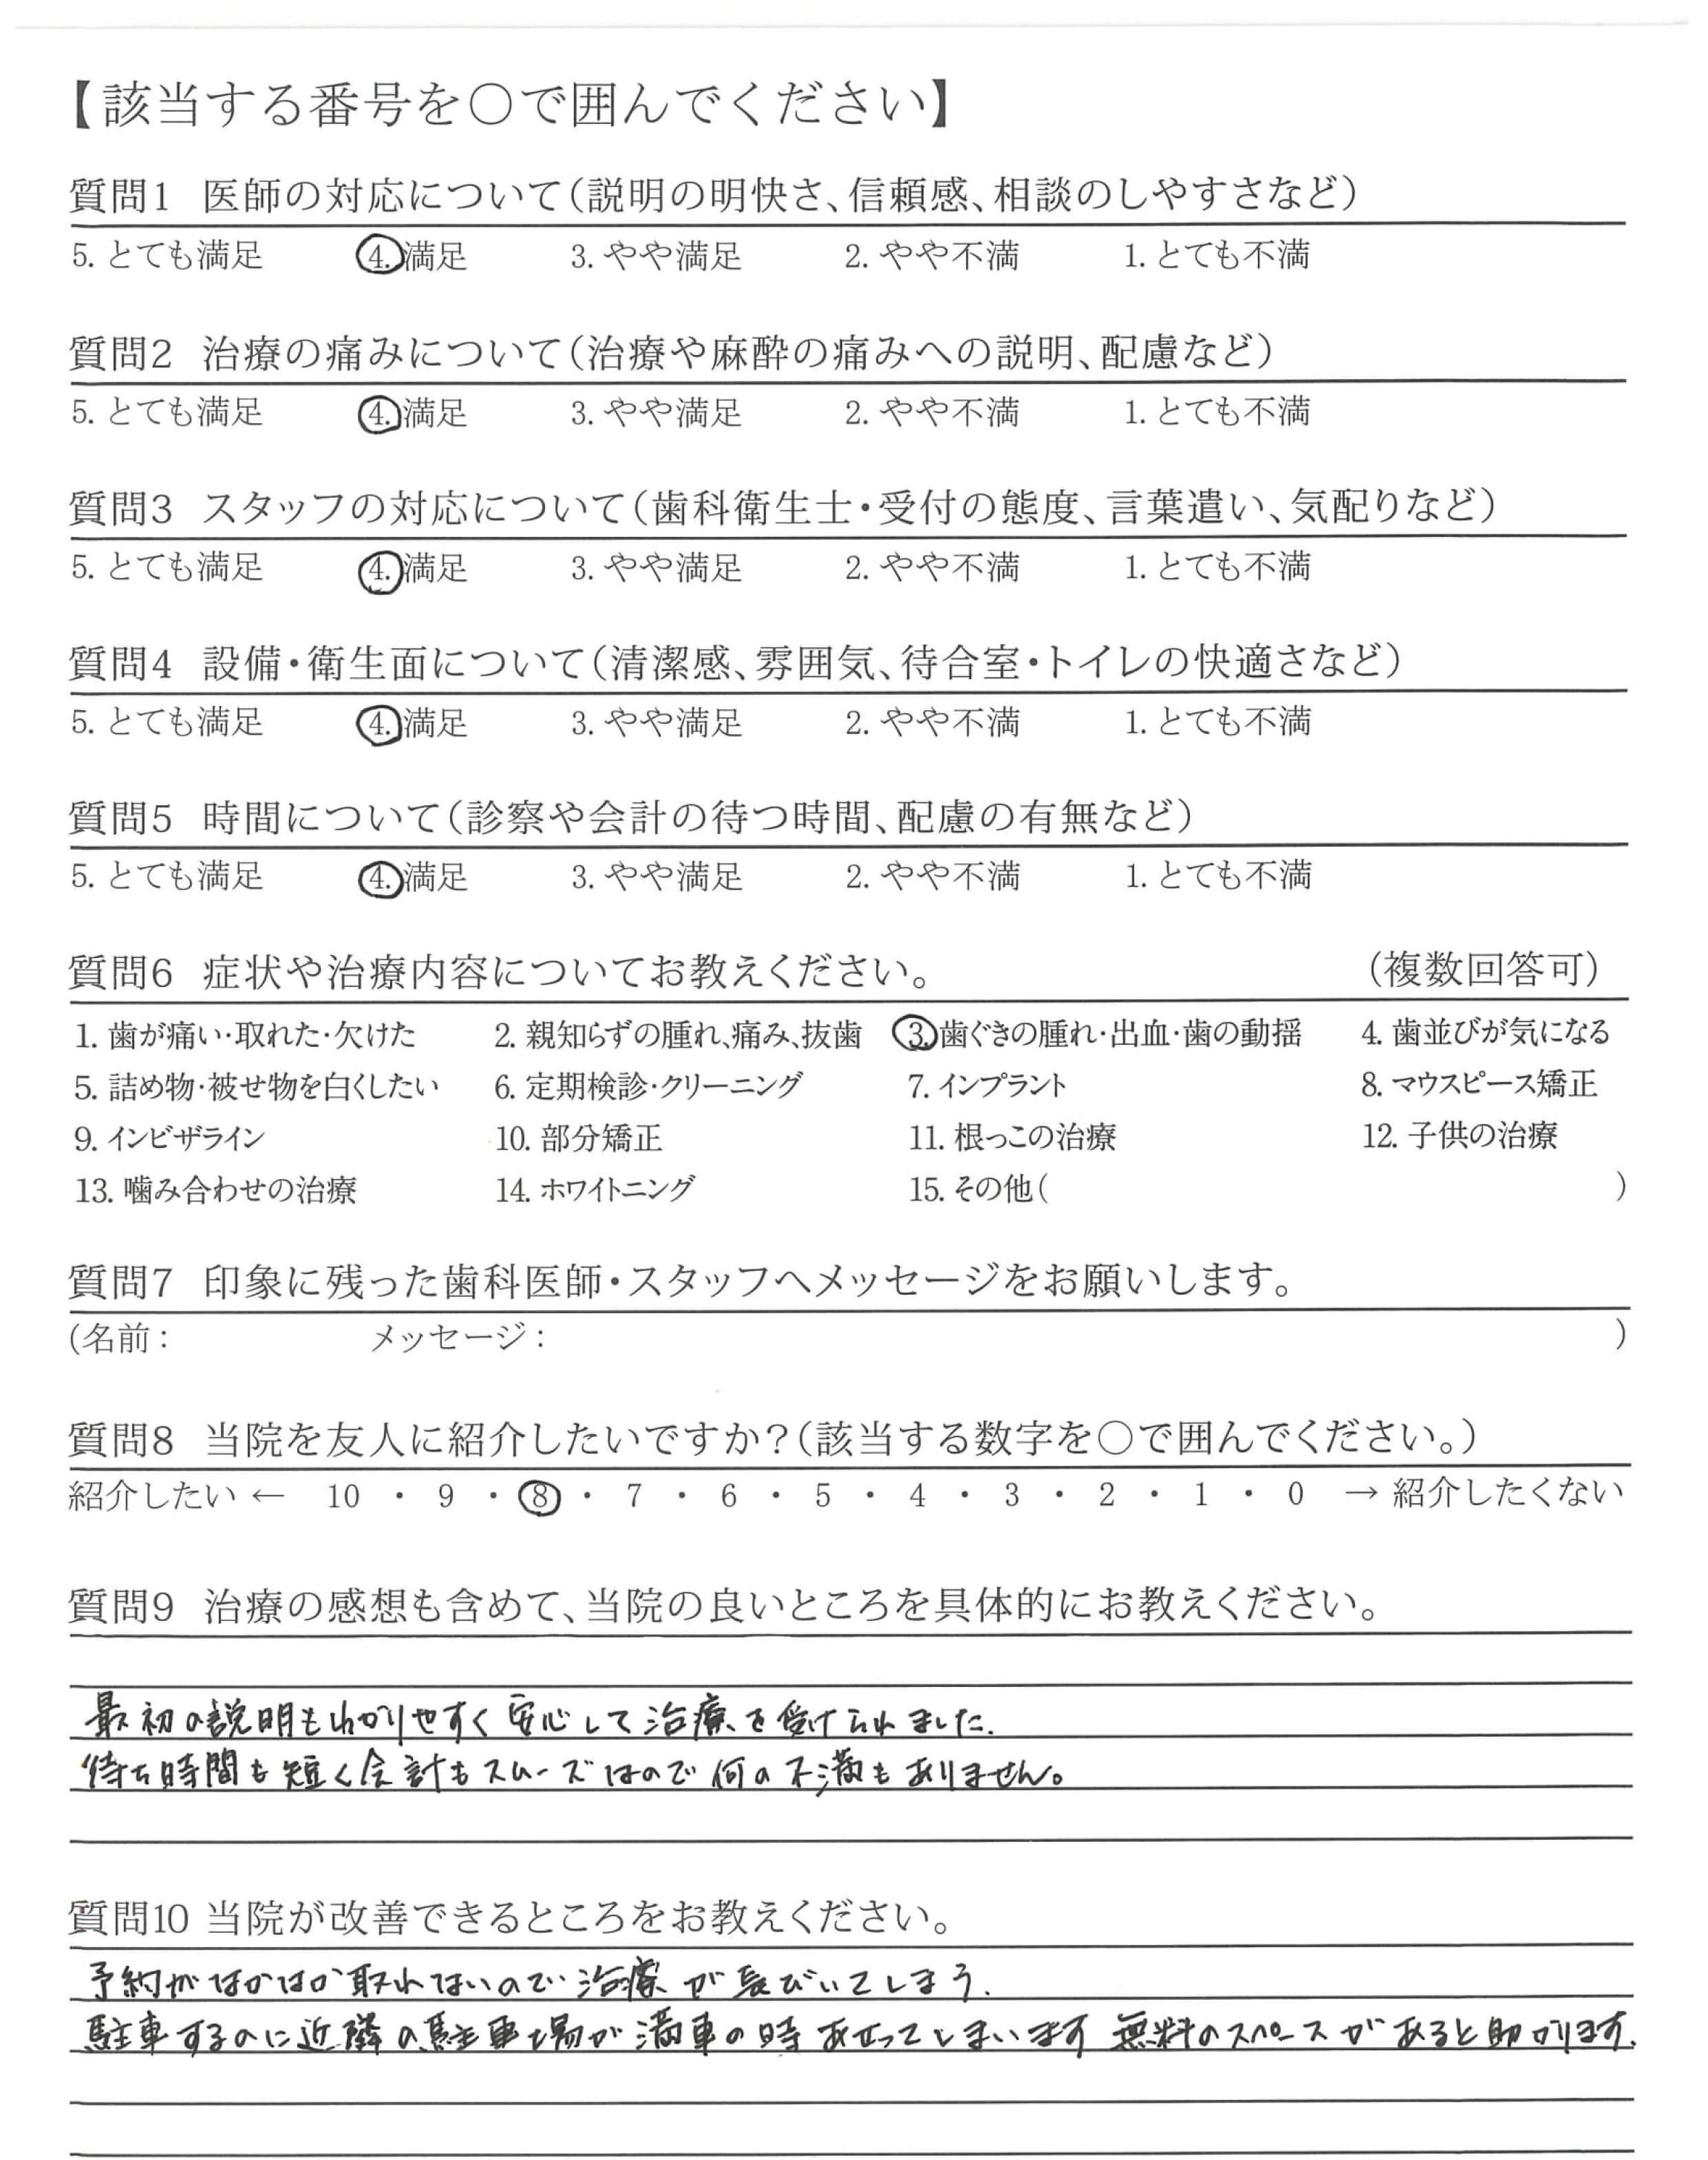 【該当する番号を○で囲んでください】
質問1 医師の対応について(説明の明快さ、信頼感、相談のしやすさなど)
5. とても満足 4. 満足 3. やや満足 2. やや不満 1. とても不満
質問2 治療の痛みについて(治療や麻酔の痛みへの説明、配慮など)
5. とても満足 4. 満足 3. やや満足 2. やや不満 1. とても不満
質問3 スタッフの対応について(歯科衛生士・受付の態度、言葉遣い、気配りなど)
5. とても満足 4. 満足 3. やや満足 2. やや不満 1. とても不満
質問4 設備・衛生面について(清潔感、雰囲気、待合室・トイレの快適さなど)
5. とても満足 4. 満足 3. やや満足 2. やや不満 1. とても不満
質問5 時間について(診察や会計の待つ時間、配慮の有無など)
5. とても満足 4. 満足 3. やや満足 2. やや不満 1. とても不満
質問6 症状や治療内容についてお教えください。 (複数回答可)
1. 歯が痛い・取れた・欠けた 2. 親知らずの腫れ、痛み、抜歯 3. 歯ぐきの腫れ・出血・歯の動揺 4. 歯並びが気になる
5. 詰め物・被せ物を白くしたい 6. 定期検診・クリーニング 7. インプラント 8. マウスピース矯正
9. インビザライン 10. 部分矯正 11. 根っこの治療 12. 子供の治療
13. 噛み合わせの治療 14. ホワイトニング 15. その他( )
質問7 印象に残った歯科医師・スタッフへメッセージをお願いします。
(名前: メッセージ: )
質問8 当院を友人に紹介したいですか?(該当する数字を○で囲んでください。)
紹介したい ← 10 ・ 9 ・ 8 ・ 7 ・ 6 ・ 5 ・ 4 ・ 3 ・ 2 ・ 1 ・ 0 → 紹介したくない
質問9 治療の感想も含めて、当院の良いところを具体的にお教えください。
最初の説明もわかりやすく安心して治療を受けられました.
待ち時間も短く会計もスムーズなので何の不満もありません。
質問10 当院が改善できるところをお教えください。
予約がなかなか取れないので治療が長びいてしまう.
駐車するのに近隣の駐車場が満車の時あせってしまいます 無料のスペースがあると助かります.